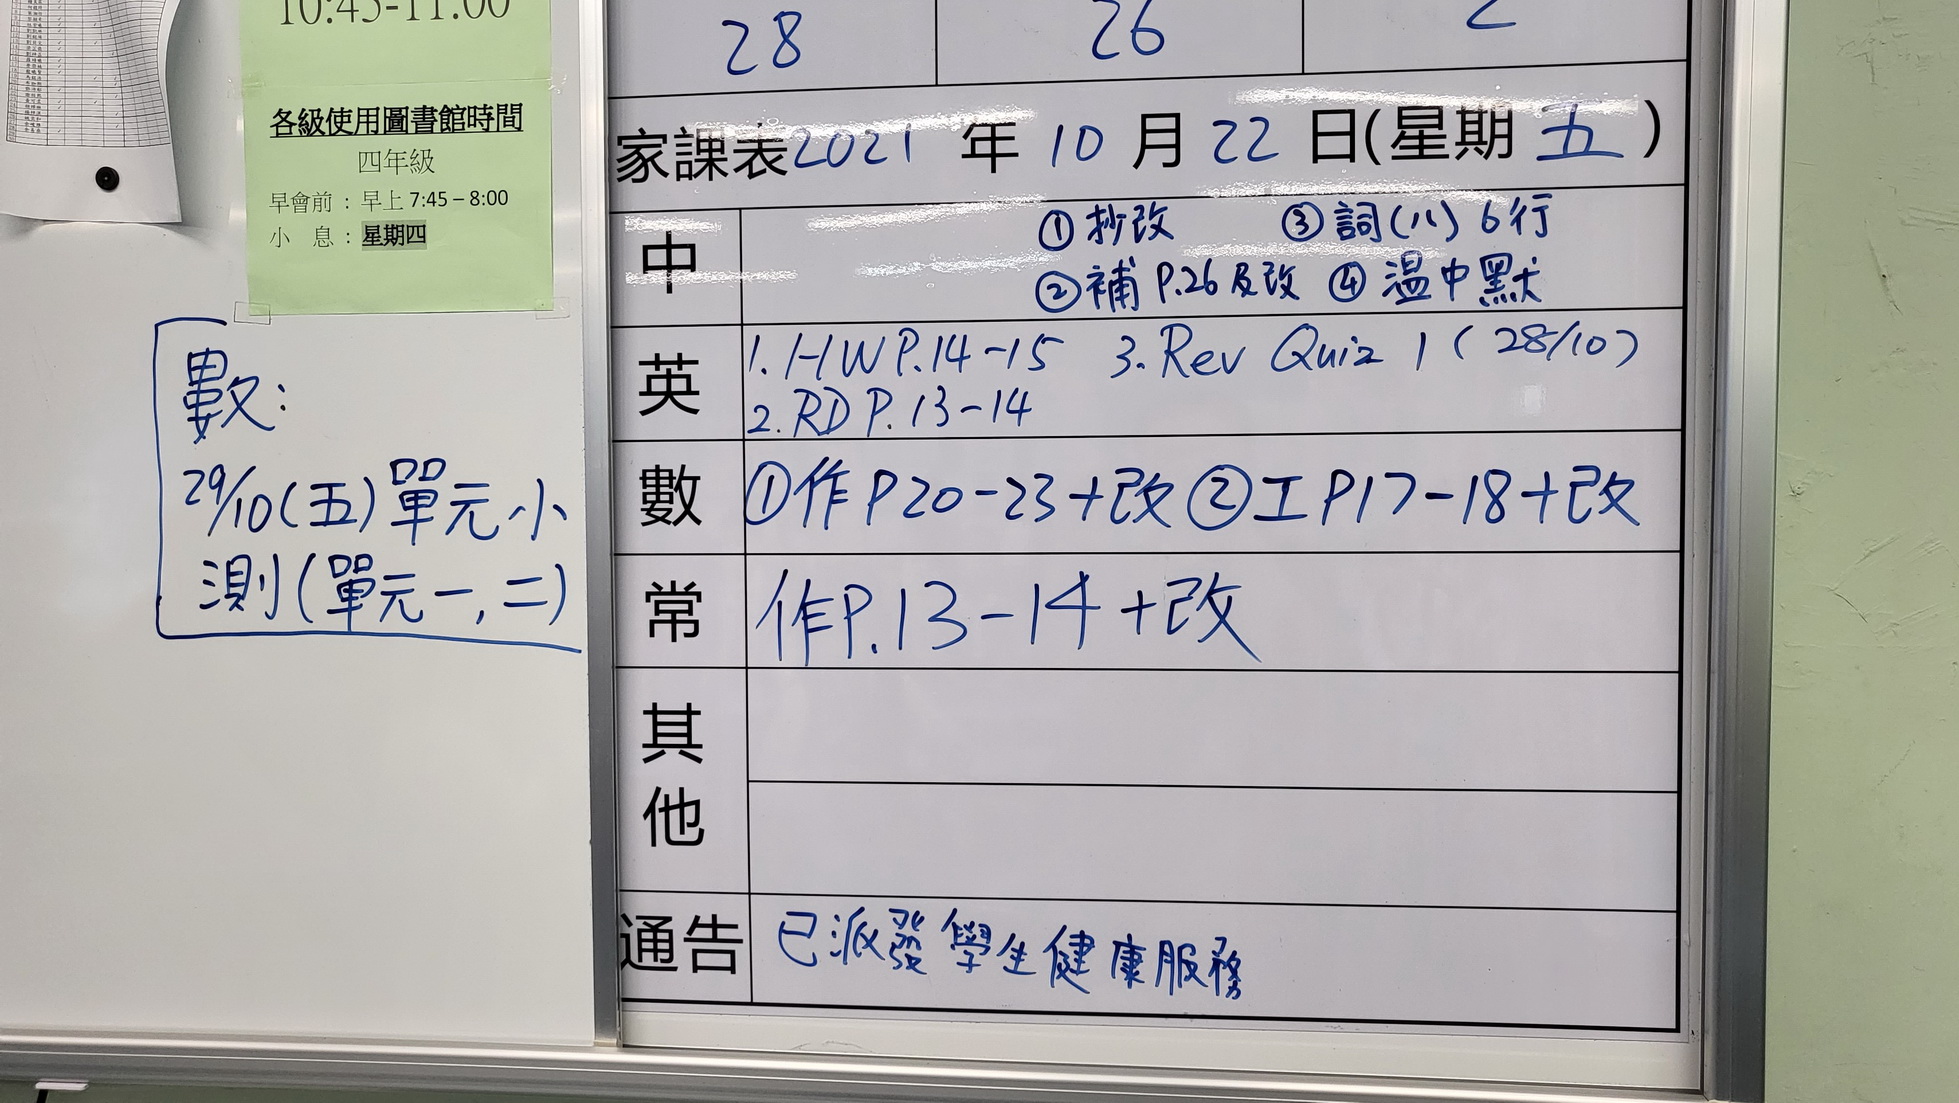 10:45-11:00
各級使用圖書館時間
四年級
早會前：早上 7:45 – 8:00
小 息：星期四
數：
29/10(五)單元小
測(單元一,二)
28 26 2
家課表2021年10月22日(星期五)
中
①抄改 ③詞(八)6行
②補P.26及改 ④溫中默
英
1. HW P.14-15 3. Rev Quiz 1 (28/10)
2. RD P.13-14
數 ①作P20-23+改②工P17-18+改
常 作P.13-14+改
其他
通告 已派發學生健康服務